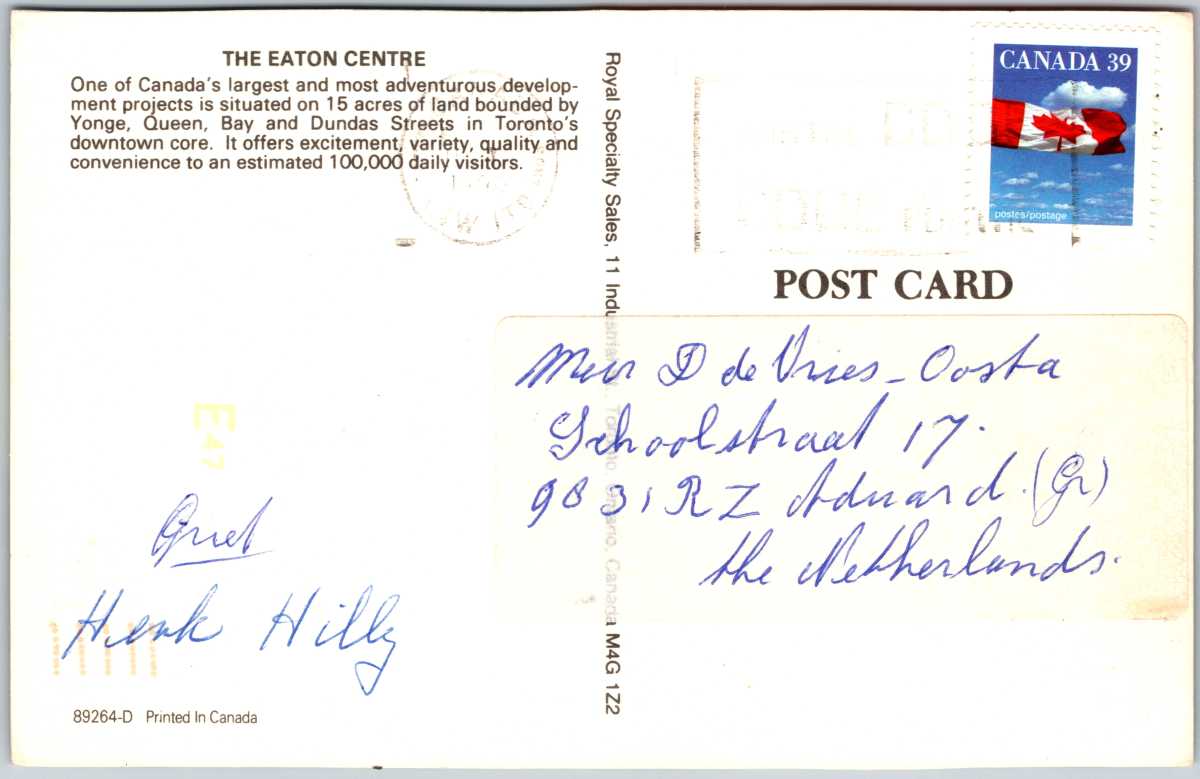 THE EATON CENTRE
One of Canada's largest and most adventurous develop-
ment projects is situated on 15 acres of land bounded by
Yonge, Queen, Bay and Dundas Streets in Toronto's
downtown core. It offers excitement, variety, quality and
convenience to an estimated 100,000 daily visitors.
E47
Henk Hilly
89264-D Printed In Canada
Royal Specialty Sales, 11 Industrial St., Toronto, Ontario, Canada M4G 1Z2
CANADA 39
postes/postage
POST CARD
D de Vries-Oosta
Schoolstraat 17.
9831 RZ Aduard. (Gr)
the Netherlands.